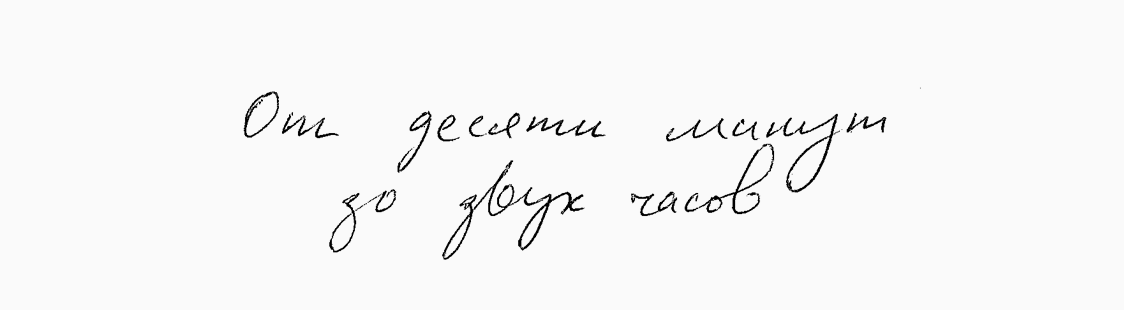 От десяти минут
до двух часов